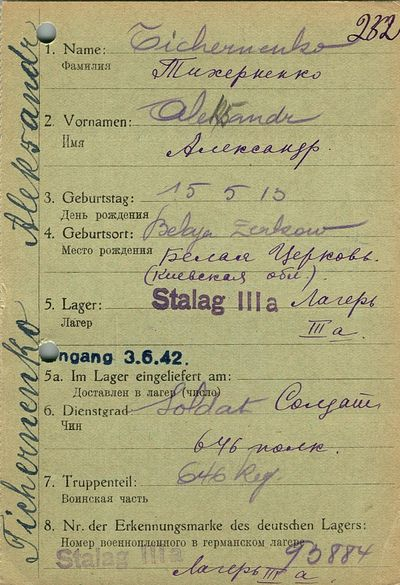 232
1. Name: Tichernenko
Фамилия
Тихерненко
2. Vornamen: Aleksandr
Имя
Александр.
3. Geburtstag: 15 5 13
День рождения
4. Geburtsort: Belaja Zerkow
Место рождения
Белая Церковь.
(Киевская обл.)
5. Lager: Stalag IIIa Лагерь
Лагерь
IIIа.
ngang 3.6.42.
5a. Im Lager eingeliefert am:
Доставлен в лагер (число)
6. Dienstgrad Soldat Солдат
Чин
646 полк.
7. Truppenteil: 646 Reg.
Воинская часть
8. Nr. der Erkennungsmarke des deutschen Lagers:
Номер военнопленного в германском лагере
93884
Stalag IIIa
Лагерь IIIа
Tichernenko Aleksandr